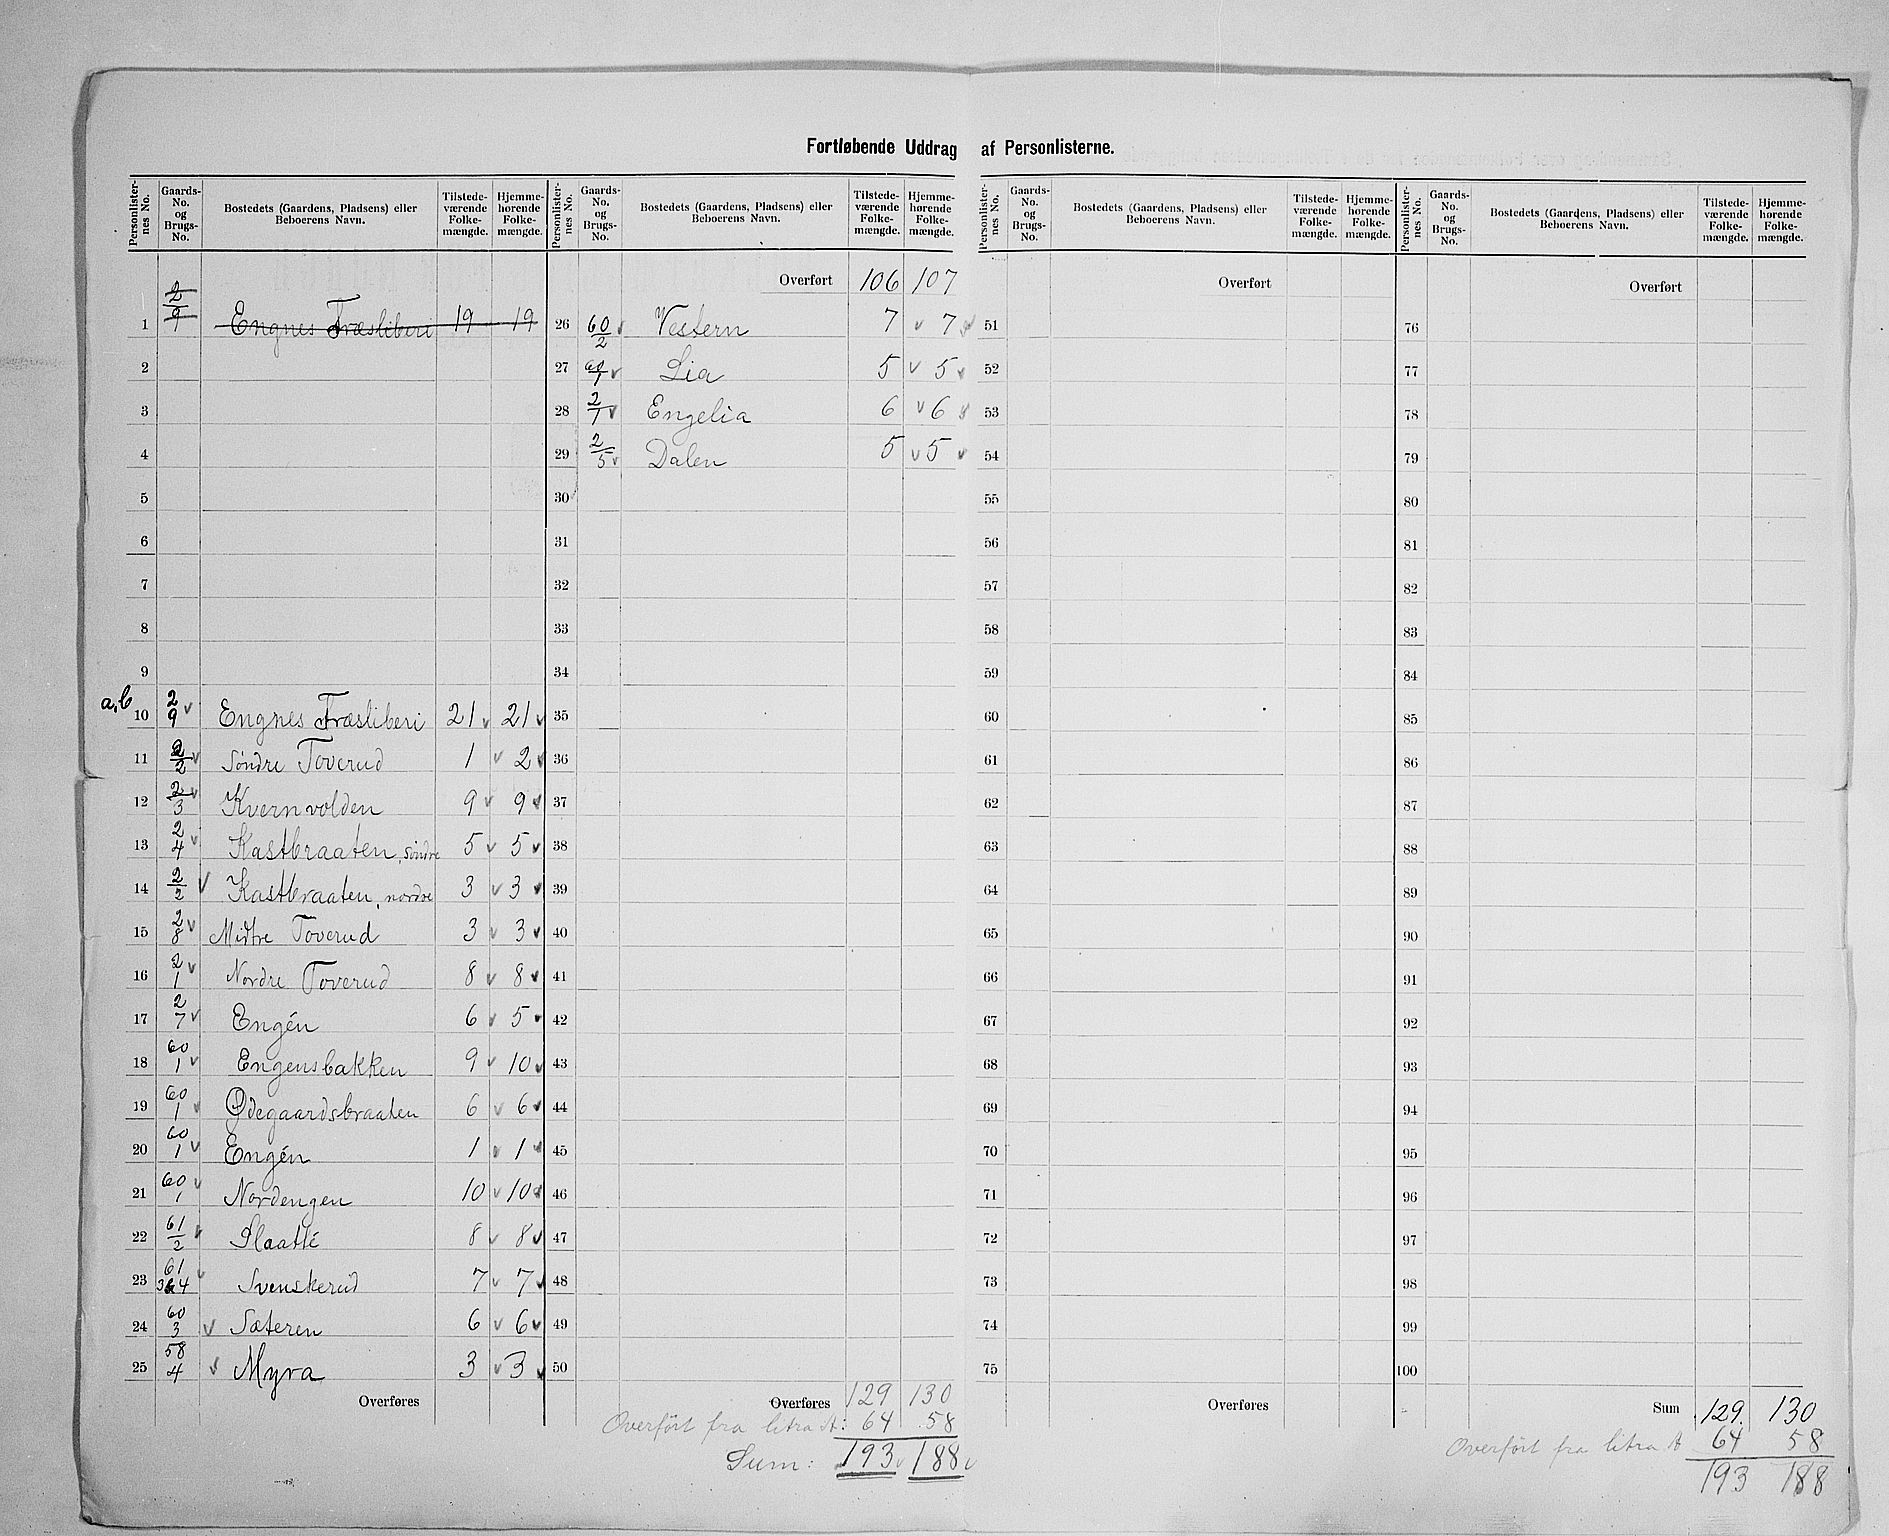 Fortløbende Uddrag af Personlisterne.
Personlisternes No. | Gaards-No. og Brugs-No. | Bostedets (Gaardens, Pladsens) eller Beboerens Navn. | Tilstedeværende Folkemængde. | Hjemmehørende Folkemængde.
1 | 2/9 | Engnes Træsliberi | 19 | 19
2
3
4
5
6
7
8
9
a,b 10 | 2/9 | Engnes Træsliberi | 21 | 21
11 | 2/2 | Søndre Toverud | 1 | 2
12 | 2/3 | Kvernvolden | 9 | 9
13 | 2/4 | Kastbraaten, søndre | 5 | 5
14 | 2/2 | Kastbraaten, nordre | 3 | 3
15 | 2/8 | Midtre Toverud | 3 | 3
16 | 2/1 | Nordre Toverud | 8 | 8
17 | 2/7 | Engén | 6 | 5
18 | 60/1 | Engensbakken | 9 | 10
19 | 60/1 | Ødegaardsbraaten | 6 | 6
20 | 60/1 | Engén | 1 | 1
21 | 60/1 | Nordengen | 10 | 10
22 | 61/2 | Slaatté | 8 | 8
23 | 61/3&4 | Svenskerud | 7 | 7
24 | 60/3 | Sæteren | 6 | 6
25 | 58/4 | Myra | 3 | 3
Overføres
Personlisternes No. | Gaards-No. og Brugs-No. | Bostedets (Gaardens, Pladsens) eller Beboerens Navn. | Tilstedeværende Folkemængde. | Hjemmehørende Folkemængde.
Overført | 106 | 107
26 | 60/2 | Vestern | 7 | 7
27 | 60/1 | Lia | 5 | 5
28 | 2/1 | Engelia | 6 | 6
29 | 2/5 | Dalen | 5 | 5
30
31
32
33
34
35
36
37
38
39
40
41
42
43
44
45
46
47
48
49
50
Overføres | 129 | 130
Overført fra litra A: 64 | 58
Sum: 193 | 188
Personlisternes No. | Gaards-No. og Brugs-No. | Bostedets (Gaardens, Pladsens) eller Beboerens Navn. | Tilstedeværende Folkemængde. | Hjemmehørende Folkemængde.
Overført
51
52
53
54
55
56
57
58
59
60
61
62
63
64
65
66
67
68
69
70
71
72
73
74
75
Overføres
Personlisternes No. | Gaards-No. og Brugs-No. | Bostedets (Gaardens, Pladsens) eller Beboerens Navn. | Tilstedeværende Folkemængde. | Hjemmehørende Folkemængde.
Overført
76
77
78
79
80
81
82
83
84
85
86
87
88
89
90
91
92
93
94
95
96
97
98
99
100
Sum | 129. | 130
Overført fra litra A | 64 | 58
193 | 188